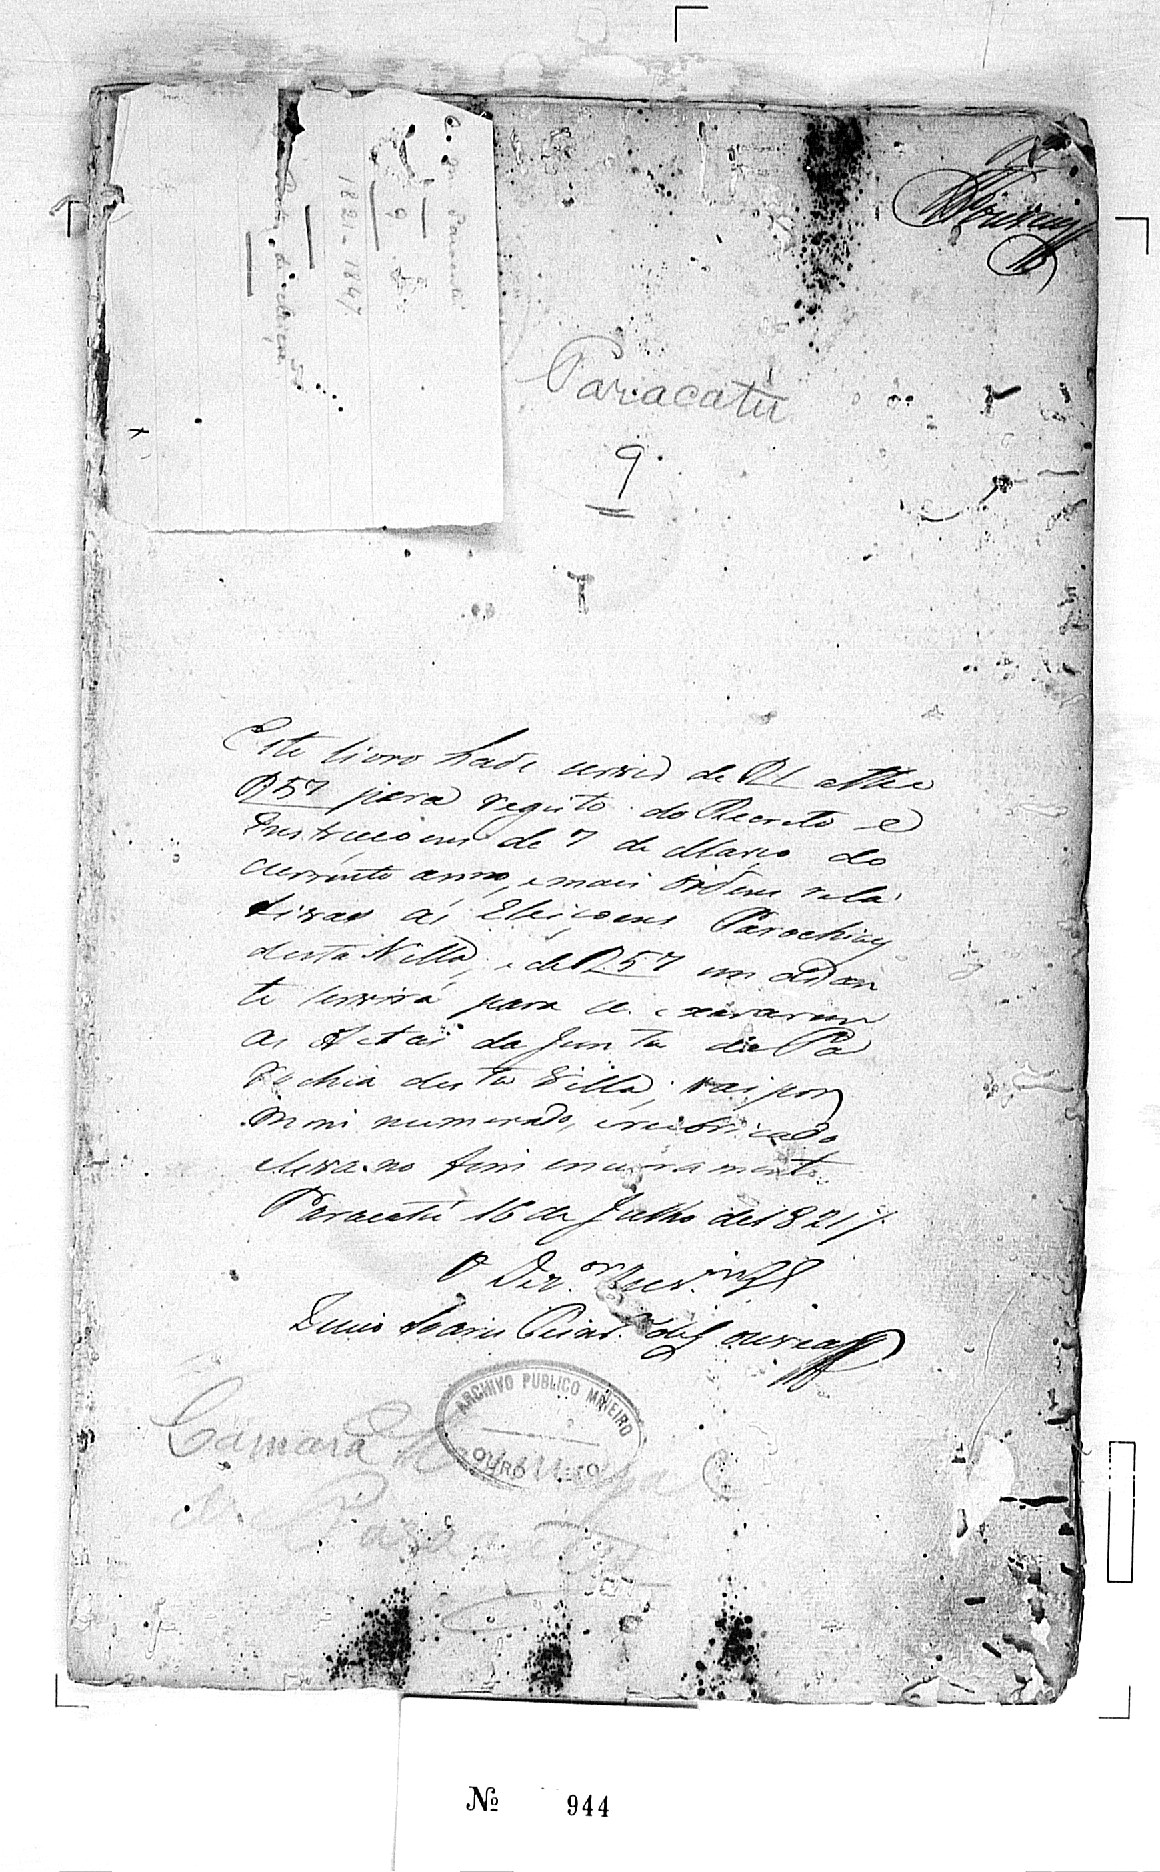 C. M. Paracatú
9
1821-1847
Paracatú
9.
Este livro hade servir de f 1 athe
f 57 para registo do Decreto e
Instrucçoens de 7 de Março do
currente anno, e mais ordens rela
tivas ás Eleiçoens Parochiaes
desta Villa, e de f 57 em dian
te servirá para se exararem
as Actas da Junta da Pa
rochia desta Villa; vai por
mim numerado, e rubricado
e leva no fim encerramento
Paracatú 16 de Julho de 1821
O Dez.or
de Gouvea
ARCHIVO PUBLICO MINEIRO
OURO PRETO
Camara
de Paracatú
Nº 944